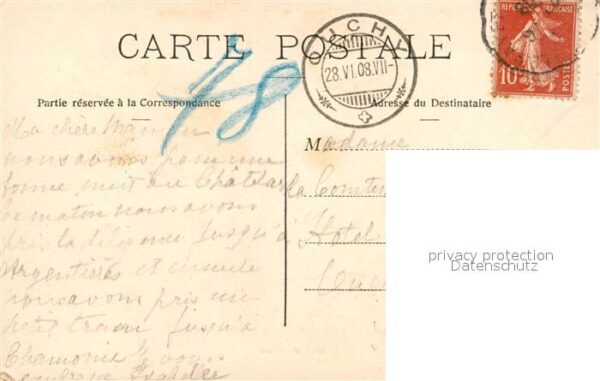 CARTE POSTALE
RÉPUBLIQUE FRANÇAISE
10
POSTES
OUCHY
28.VI.08.VII-
48
Partie réservée à la Correspondance
Adresse du Destinataire
Ma chère Maman
nous avons passé une
bonne nuit au Châtelard
le matin nous avons
pris la diligence jusqu'à
Argentières et ensuite
nous avons pris un
petit train jusqu'à
Chamonix je vous
embrasse Isabelle
Madame
la Comtesse
Hotel
Ouchy
privacy protection
Datenschutz